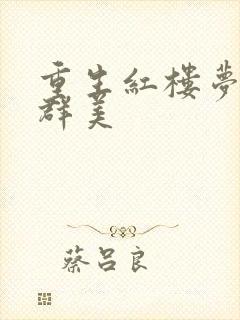 重生紅樓夢
群美
蔡呂良